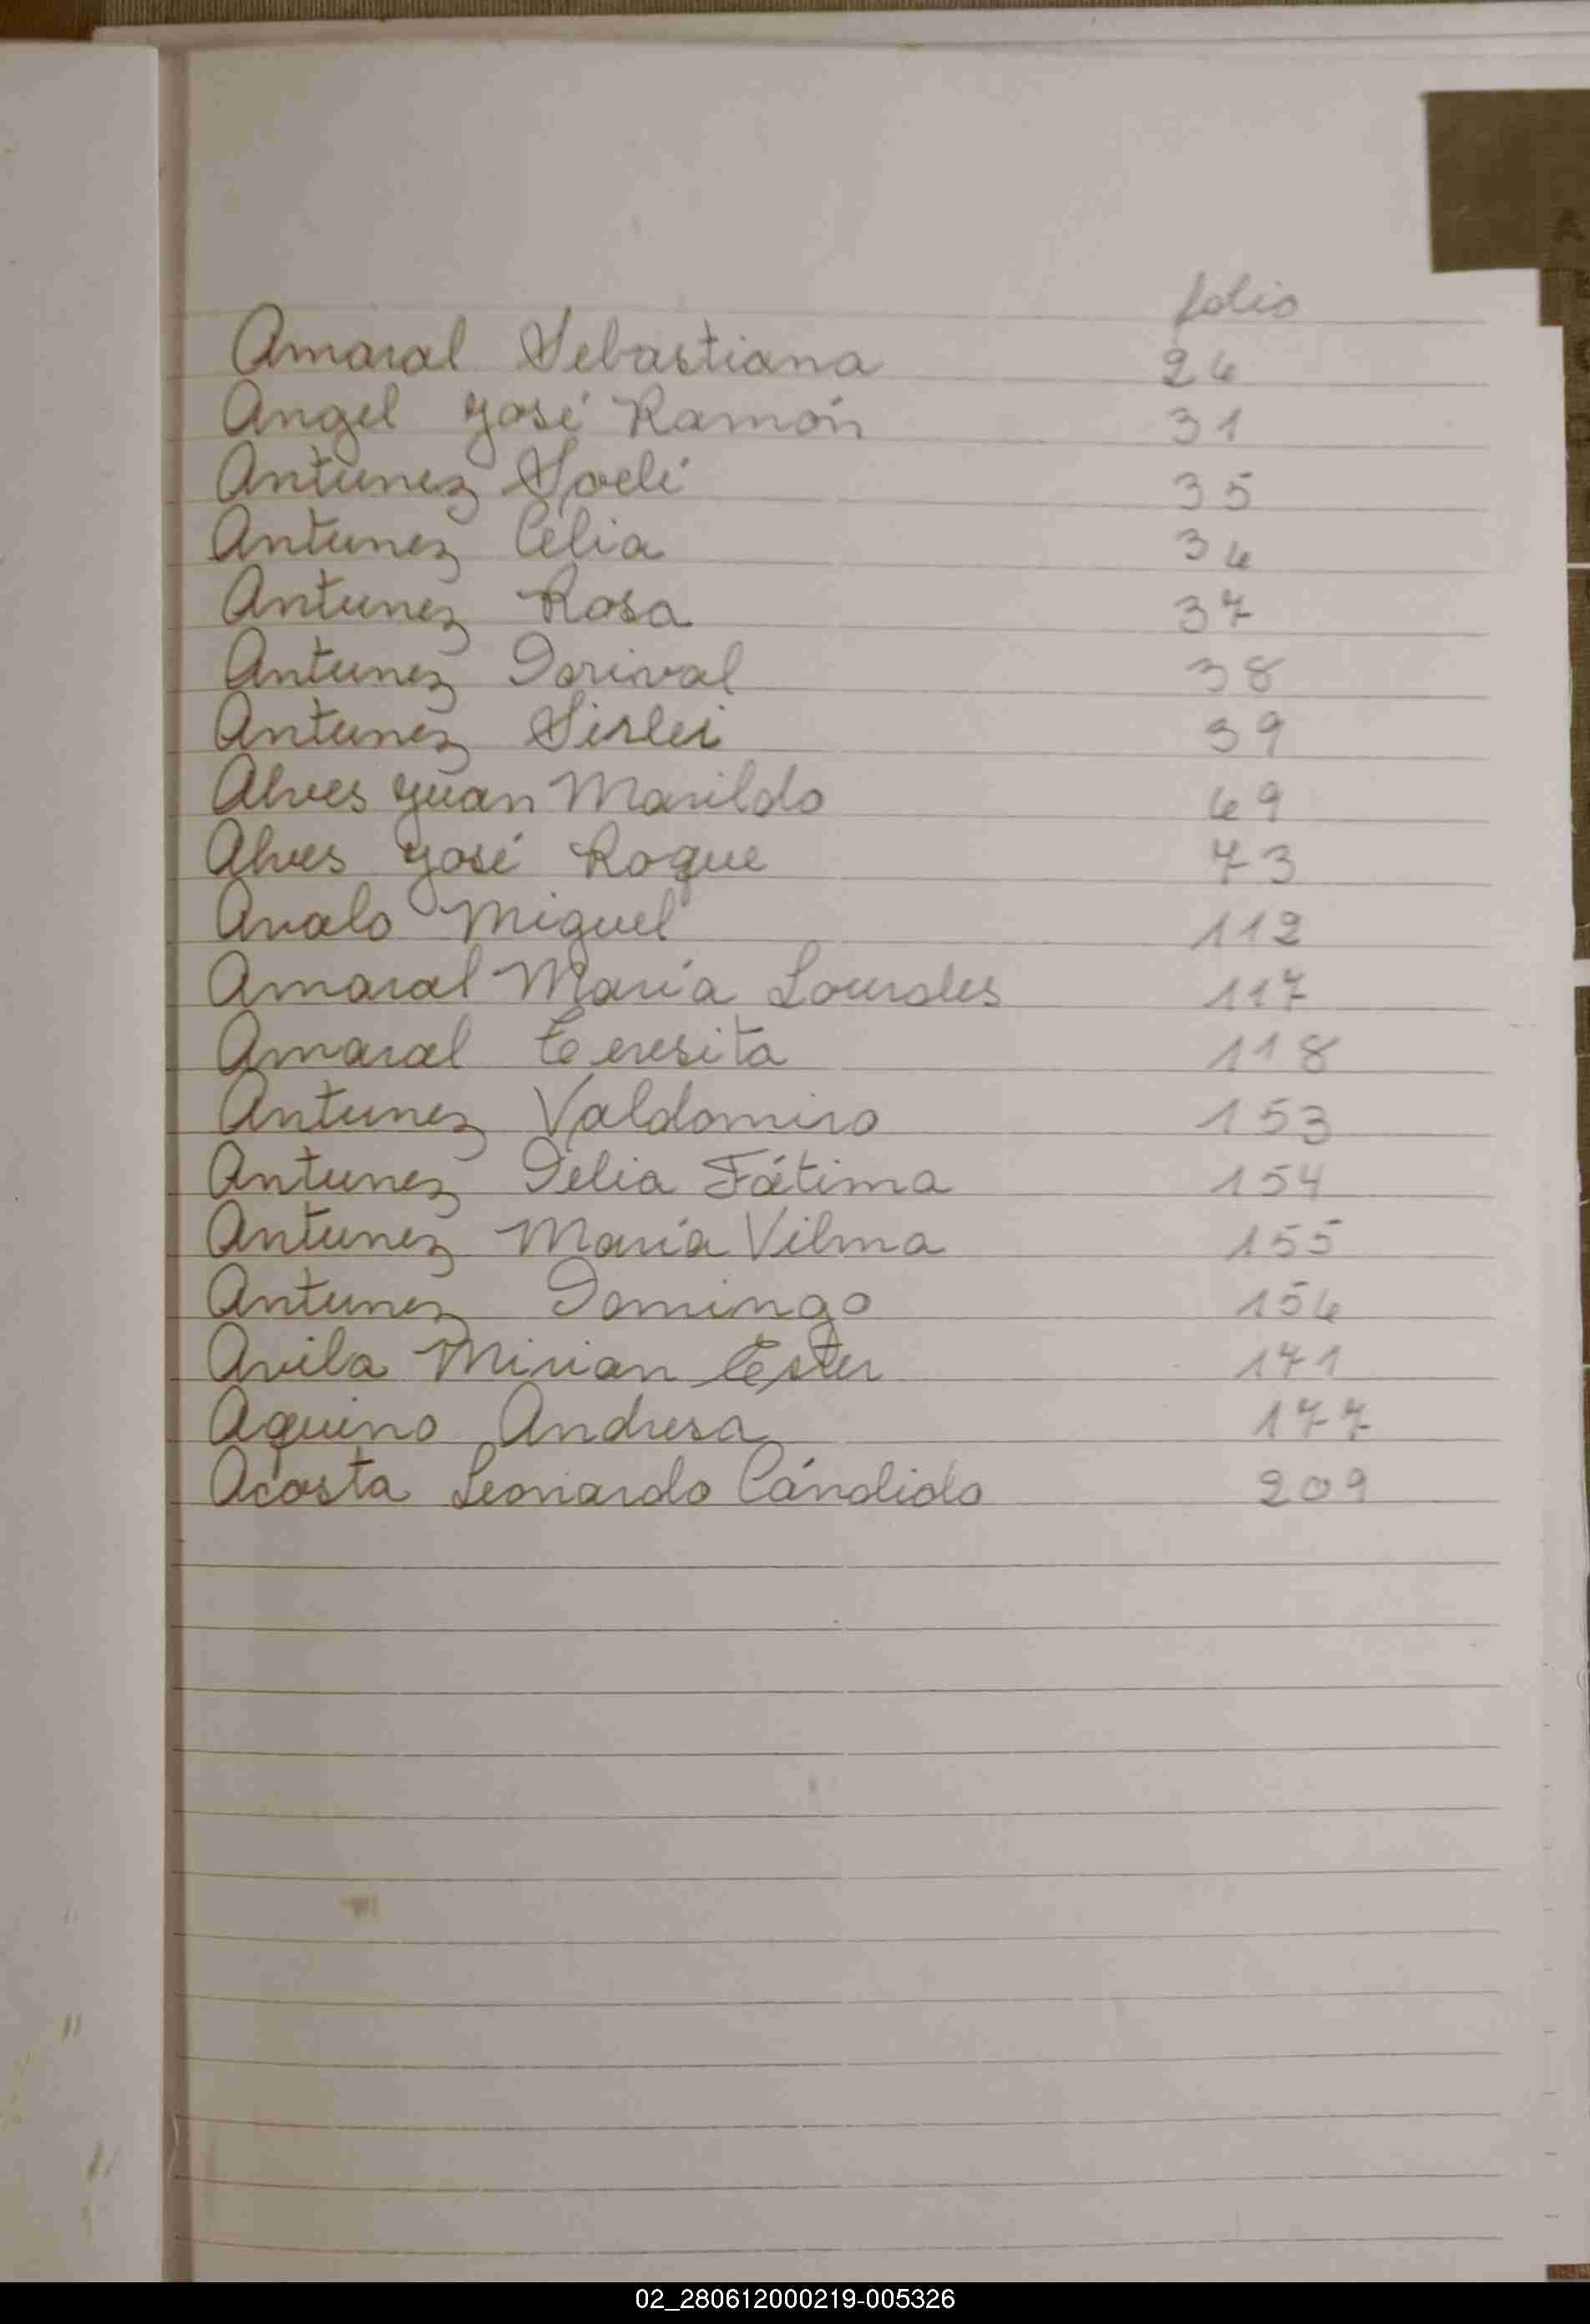 folio
Amaral Sebastiana 26
Angel José Ramón 31
Antunez Soeli 35
Antunez Celia 36
Antunez Rosa 37
Antunez Dorival 38
Antunez Sirlei 39
Alves Juan Marildo 69
Alves José Roque 73
Avalo Miguel 112
Amaral María Lourdes 117
Amaral Teresita 118
Antunez Valdomiro 153
Antunez Delia Fátima 154
Antunez María Vilma 155
Antunez Domingo 156
Avila Mirian Ester 171
Aquino Andresa 177
Acosta Leonardo Cándido 209
02_280612000219-005326